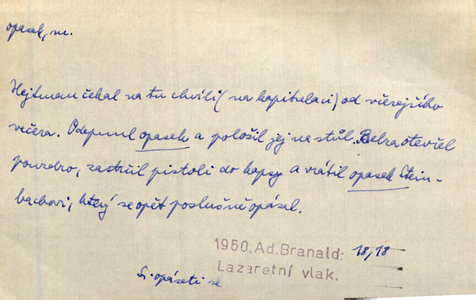 opasek, m.
Hejtman čekal na tu chvíli (na kapitulaci) od včerejšího
večera. Odepnul opasek a položil jej na stůl. Belza otevřel
pouzdro, zastrčil pistoli do kapsy a vrátil opasek Stein-
bachovi, který se opět poslušně opásal.
1950, Ad. Branald: 18,18
Lazaretní vlak.
Sr. opásati se